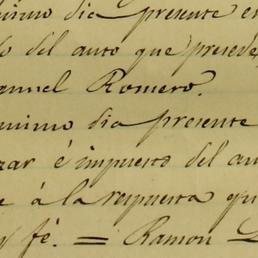 nimo dia presente en
o del auto que precede,
anuel Romero.
nimo dia presente
zar é impuesto del au
e á la respuesta qu
y fé. = Ramon